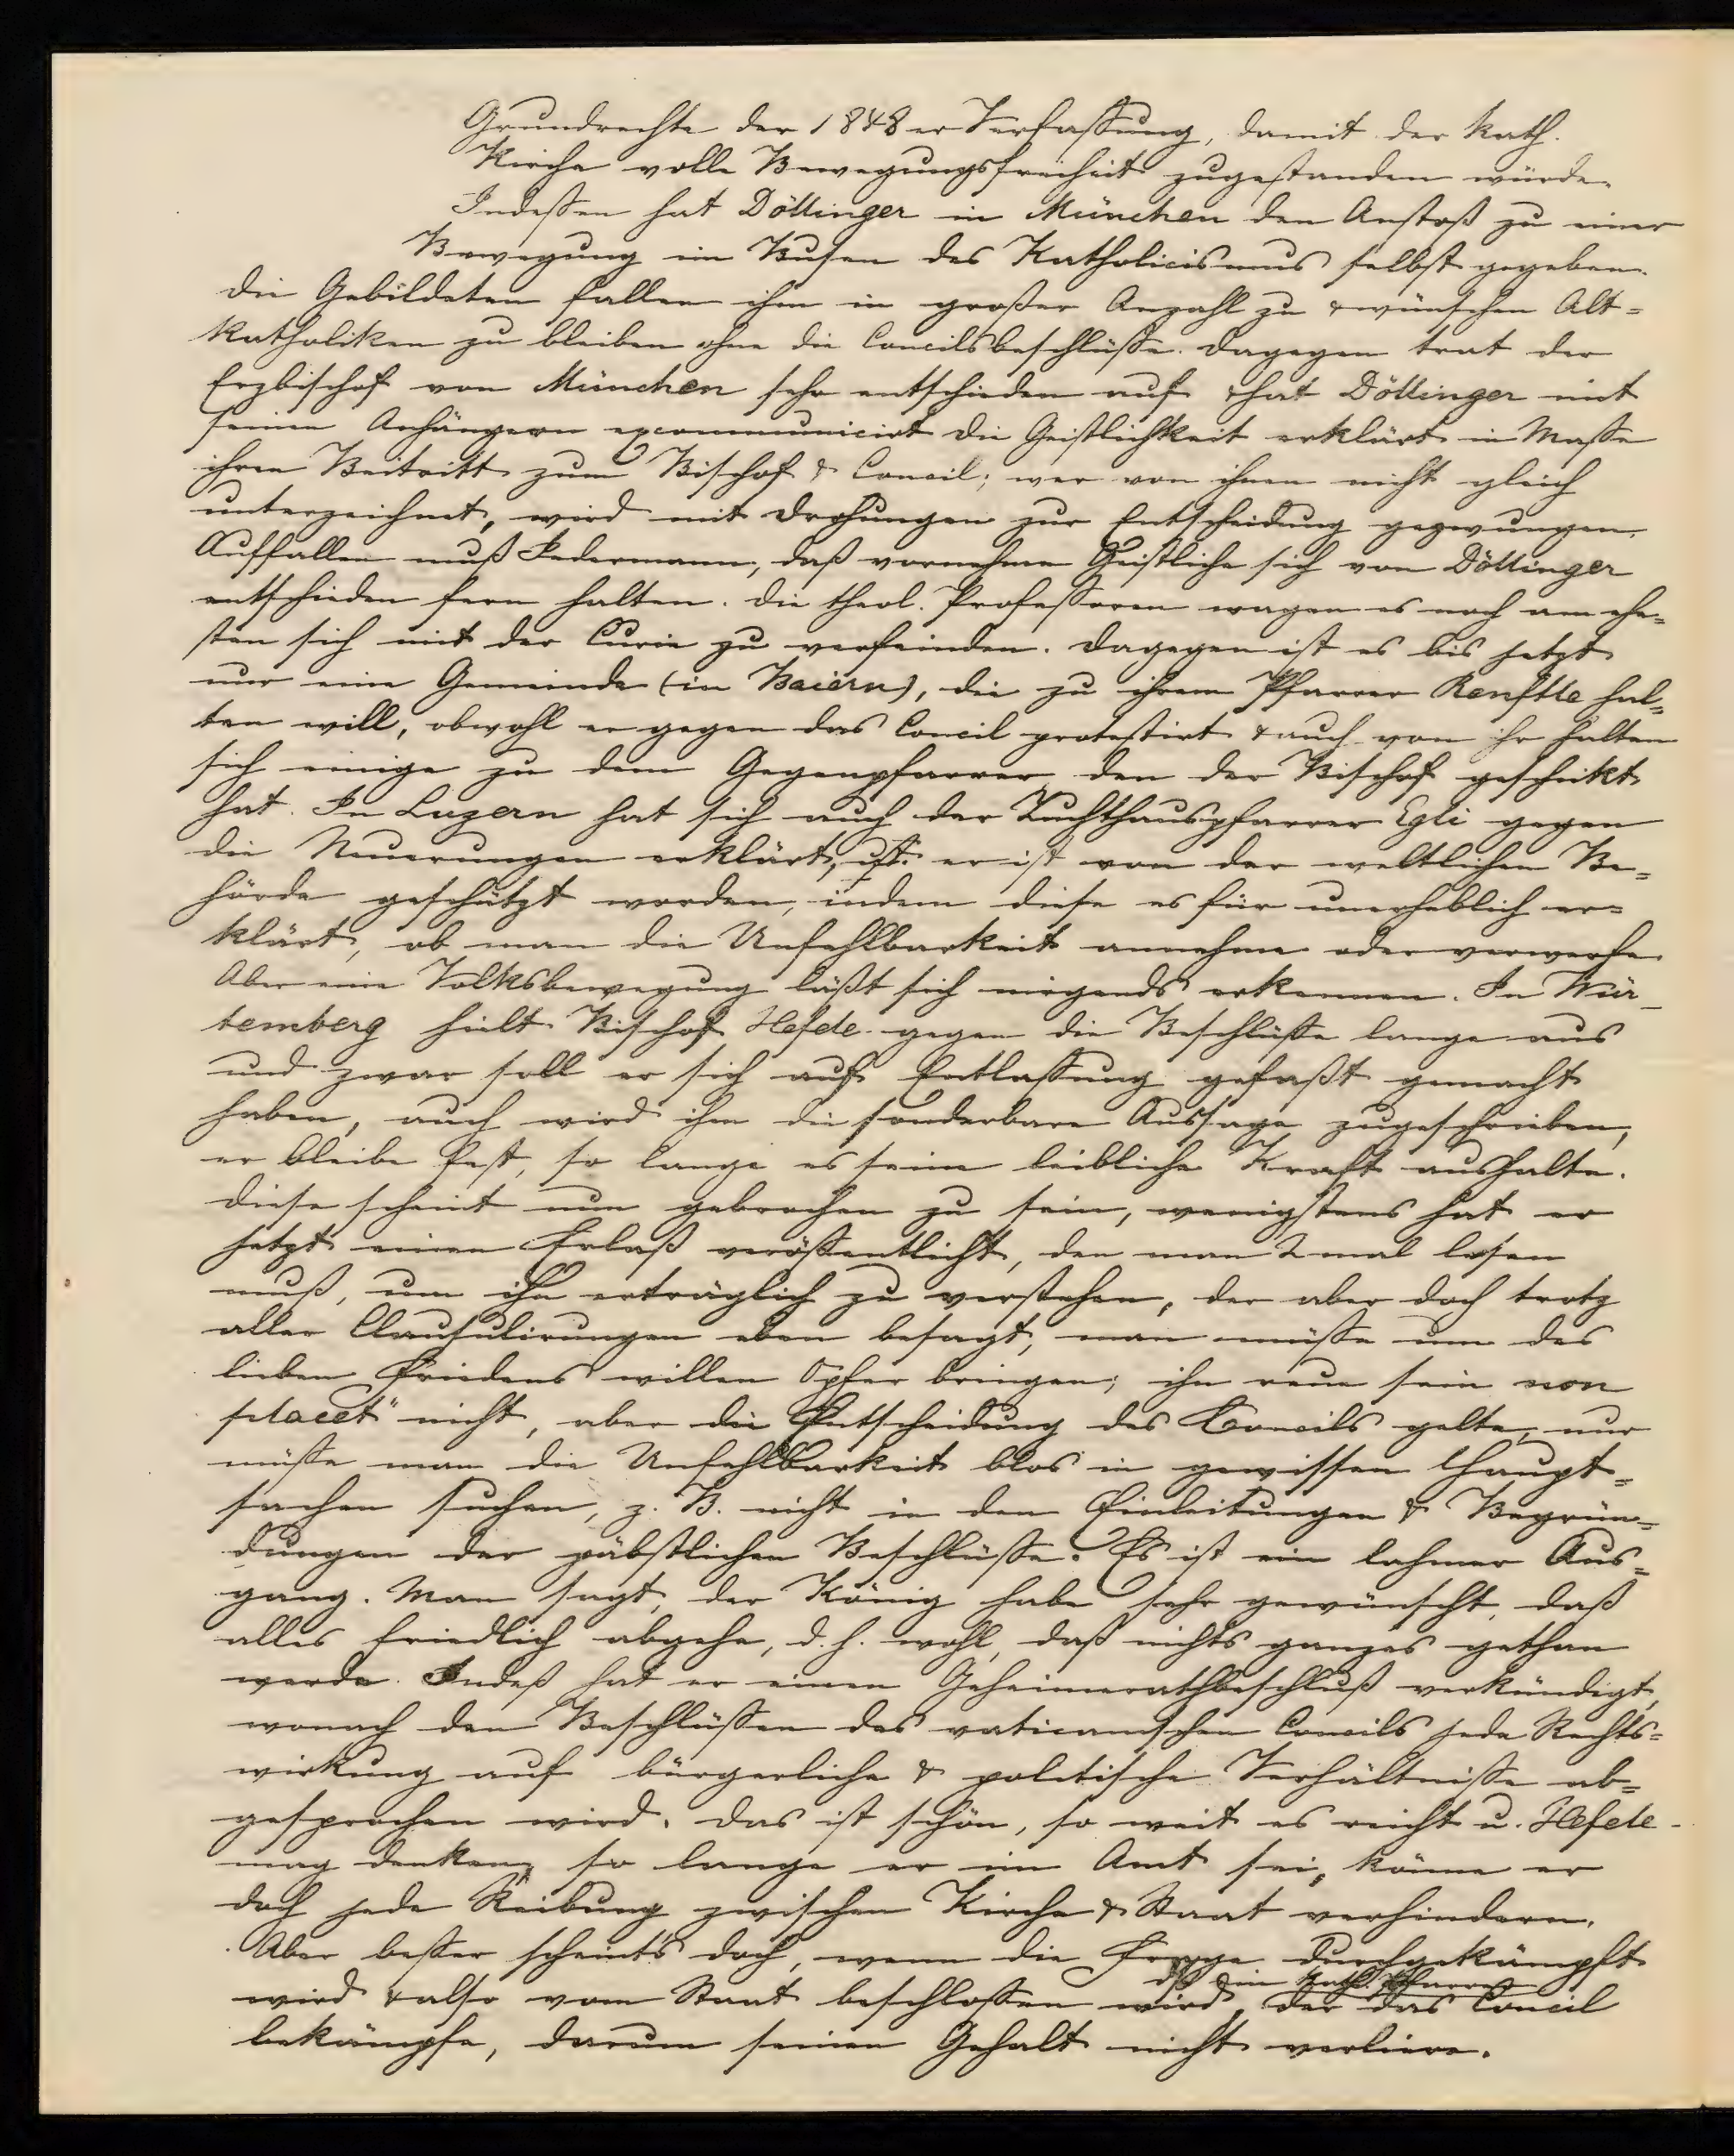 Grundrechte der 1848er Verfaßung, damit der kath.
Kirche volle Bewegungsfreiheit zugestanden würde.
Indeßen hat Döllinger in München den Anstoß zu einer
Bewegung im Busen des Katholicismus selbst gegeben.
Die Gebildeten fallen ihm in großer Anzahl zu & wünschen Alt=
katholiken zu bleiben ohne die Concilsbeschlüße. Dagegen trat der
Erzbischof von München sehr entschieden auf & hat Döllinger mit
seinen Anhängern excommunicirt die Geistlichkeit erklärt in Maße
ihren Beitritt zum Bischof & Concil; wer von ihnen nicht gleich
unterzeichnet, wird mit Drohungen zur Entscheidung gezwungen.
Auffallen muß Jedermann, daß vornehme Geistliche sich von Döllinger
entschieden fern halten. Die theol. Profeßoren wagen es noch am ehe=
sten sich mit der Curie zu verfeinden. Dagegen ist es bis jetzt
nur eine Gemeinde (in Baiern), die zu ihrem Pfarrer Renftle hal=
ten will, obwohl er gegen das Concil protestirt & auch von ihr halten
sich einige zu dem Gegenpfarrer den der Bischof geschickt
hat. In Luzern hat sich auch der Zuchthauspfarrer Egli gegen
die Neuerungen erklärt, er ist von der weltlichen Be=
hörde geschützt worden, indem diese es für unerheblich er=
klärt, ob man die Unfehlbarkeit annehme oder verwerfe.
Aber eine Volksbewegung läßt sich nirgends erkennen. In Wür=
temberg hielt Bischof Hefele gegen die Beschlüße lange aus
und zwar soll er sich auf Entlaßung gefaßt gemacht
haben, auch wird ihm die sonderbare Aussage zugeschrieben,
er bleibe fest, so lange es seine leibliche Kraft aushalte.
Diese scheint nun gebrochen zu sein, wenigstens hat er
jetzt einen Erlaß veröffentlicht, den man 2 mal lesen
muß, um ihn erträglich zu verstehen, der aber doch trotz
aller Clausulirungen eben besagt, man müße um des
lieben Friedens willen Opfer bringen; ihn reue sein non
placet" nicht, aber die Entscheidung des Concils gelte, nur
müße man die Unfehlbarkeit blos in gewissen Haupt=
sachen suchen, z. B. nicht in den Einleitungen & Begrün=
dungen der päbstlichen Beschlüße. Es ist ein lahmer Aus=
gang. Man sagt, der König habe sehr gewünscht, daß
alles friedlich abgehe, d. h. wohl, daß nichts ganzes gethan
werde. Indeß hat er einen Geheimerathbeschluß verkündigt,
wonach den Beschlüßen des vaticanischen Concils jede Rechts=
wirkung auf bürgerliche & politische Verhältniße ab=
gesprochen wird. Das ist schön, so weit es reicht u. Hefele
mag denken, so lange er im Amt sei, könne er
doch jede Reibung zwischen Kirche & Staat verhindern.
Aber beßer scheint's doch, wenn die Frage durchgekämpft
wird & also vom Staat beschloßen wird, dß ein kath. Pfarrer der das Concil
bekämpfe, darum seinen Gehalt nicht verliere.